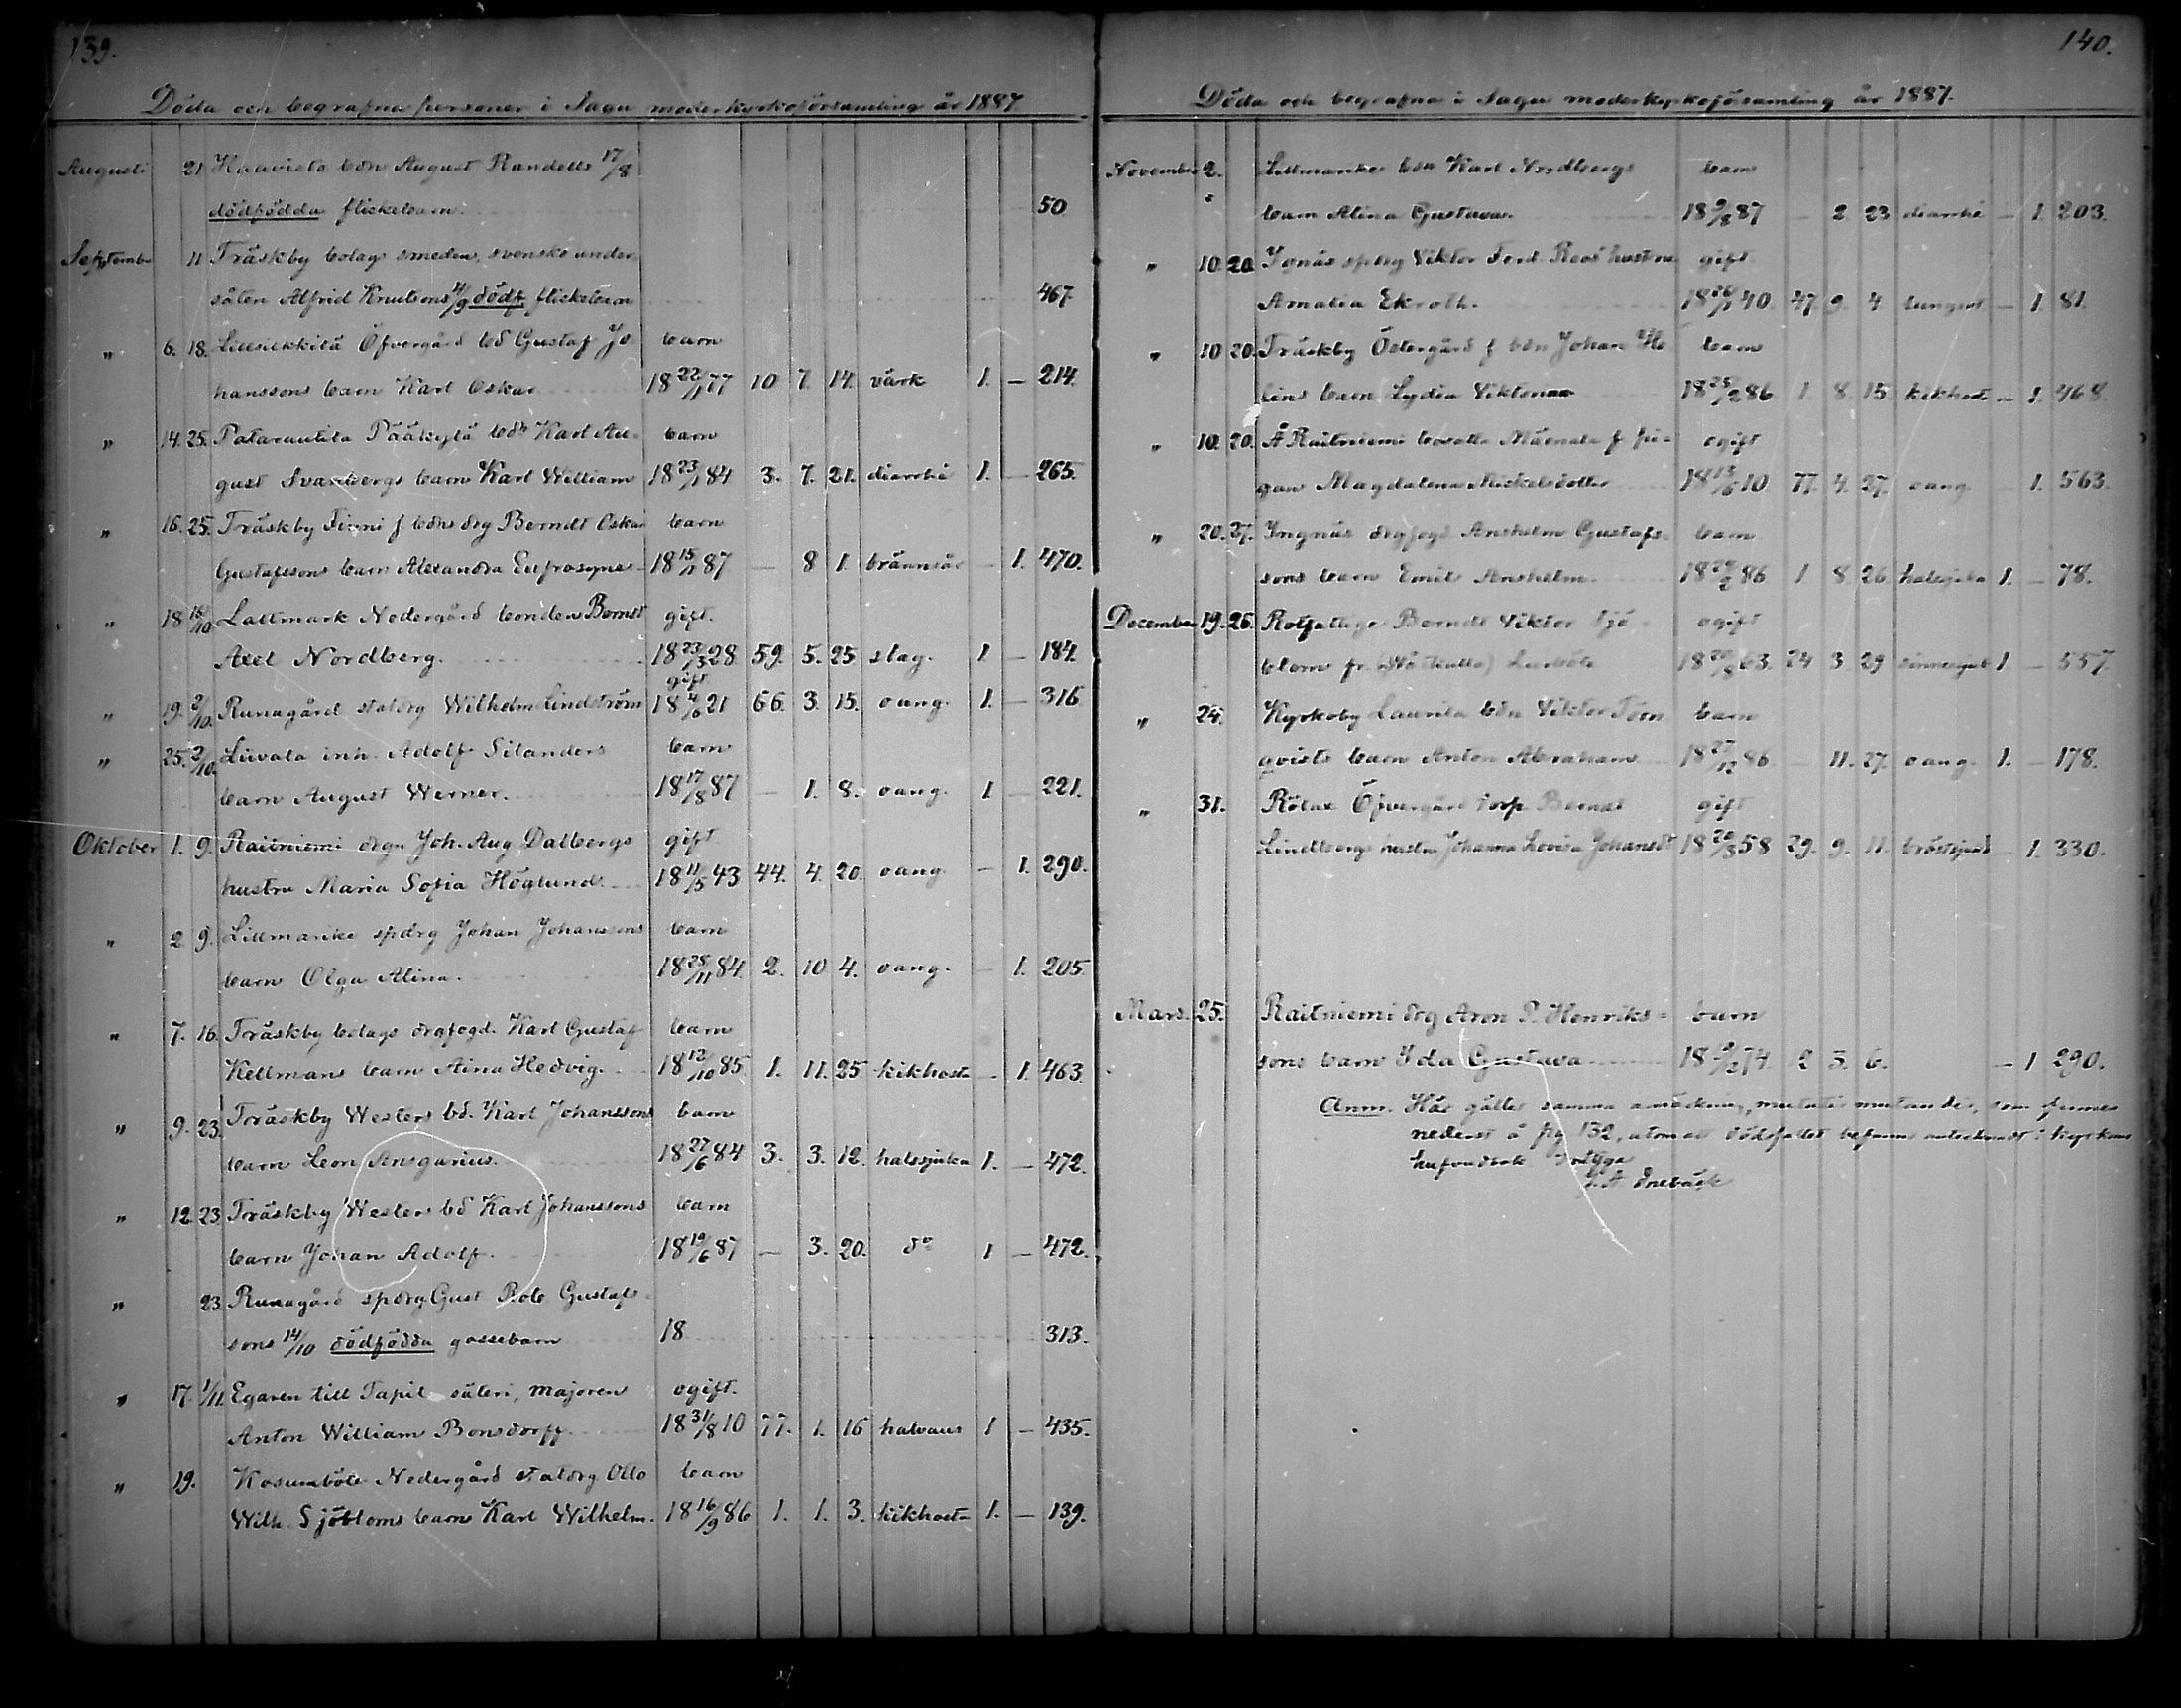 139.
Döda och begrafna personer i Sagu moderkyrkoförsamling år 1887.
Augusti 21 Haavisto bdn August Randells 17/8
dödfödda flickebarn. 50
September 11 Träskby bolags smedens, svenske under
såten Alfrid Knutsons 4/9 dödf. flickebarn 467.
" 6. 18. Lillsukkila Öfvergård bd Gustaf Jo barn
hanssons barn Karl Oskar 18 22/1 77 10 7. 14. värk 1. — 214.
" 14. 25. Patarautila Pääkylä bdn Karl Au- barn
gust Svanbergs barn Karl William 18 23/1 84 3. 7. 21. diarrhé 1. — 265.
" 16. 25. Träskby Finni f bdns drg Berndt Oskar barn
Gustafssons barn Alexandra Eufrosyne 18 15/1 87 — 8 1. brännsår — 1. 470.
" 18 16/10 Lallmark Nedergård bonden Bernst gift.
Axel Nordberg. 18 23/3 28 59. 5. 25 slag. 1. — 184.
gift
" 19. 2/10. Runagård statdrg Wilhelm Lindström 18 4/6 21 66. 3. 15. oang. 1. — 316
" 25. 2/10. Liuvala inh. Adolf Silanders barn
barn August Werner. 18 17/8 87 — 1. 8. oang. 1 — 221.
Oktober 1. 9. Raitniemi drgn Joh. Aug. Dalbergs gift
hustru Maria Sofia Höglund. 18 11/5 43 44. 4. 20. oang — 1. 290.
" 2 9. Lillmarike spdrg Johan Johanssons barn
barn Olga Alina. 18 28/11 84 2. 10 4. oang. — 1. 205
" 7. 16. Träskby bolags drgfogd. Karl Gustaf barn
Kellmans barn Aina Hedvig. 18 12/10 85 1. 11. 25. kikhosta — 1. 463.
" 9. 23. Träskby Westers bd. Karl Johanssons barn
barn Leon Ansgarius. 18 27/6 84 3. 3. 12. halssjuka 1. — 472.
" 12. 23 Träskby Westers bd Karl Johanssons barn
barn Johan Adolf. 18 19/6 87 — 3. 20. do 1 — 472.
" 23. Runagård spdrg Gust Rob. Gustafs-
sons 14/10 dödfödda gossebarn 18 313.
" 17. 1/11. Egaren till Tapila säteri, majoren ogift.
Anton William Bonsdorff. 18 31/8 10 77. 1. 16 halvaus 1 — 435.
" 19. Kosumböle Nedergård statdrg Otto barn
Wilh. Sjöbloms barn Karl Wilhelm. 18 16/9 86 1. 1. 3. kikhosta 1. — 139.
140.
Döda och begrafna i Sagu moderkyrkoförsamling år 1887.
November 2. Lillmarike bdn Karl Nordbergs barn
barn Alina Gustava. 18 9/8 87 — 2 23 diarrhé — 1. 203.
" 10. 20 Jonäs spdrg Viktor Ferd. Roos hustru gift
Amalia Ekroth. 18 26/1 40. 47. 9. 4 lungsot — 1. 81.
" 10 20. Träskby Östergård f bdn Johan barn
lins barn Lydia Viktoria 18 25/2 86 1. 8. 15. kikhosta — 1. 468.
" 10. 20. Å Raitniemi bosatta Mäenala f pi- ogift
gan Magdalena Mickelsdotter 18 13/6 10 77. 4. 27. oang — 1. 563.
" 20. 27. Yngnäs drgfogd Anshelm Gustafs- barn
sons barn Emil Anshelm. 18 24/2 86 1. 8. 26 halssjuka 1. — 78.
December 19. 26. Rotfattige Berndt Viktor Sjö- ogift
blom fr. 18 20/8 63. 24 3. 29 sinnessjuk 1. — 557.
" 24. Kyrkoby Laurila bdn Viktor Törn barn
qvists barn Anton Abraham 18 27/12 86 11. 27. oang. 1. — 178.
" 31. Rölax Öfvergård torp. Berndt gift
Lindbergs hustru Johanna Lovisa Johansdt 18 20/3 58 29. 9. 11. bröstsjuk — 1. 330.
Mars. 25. Raitniemi drg Aron P. Henriks- barn
sons barn Ida Gustava 18 74. 2 3. 6. — 1 290.
Anm. Här gäller samma anmärkning, mutatis mutandis, som finnes
nederst å pag 132, utom att dödsfallet befanns antecknadt i kyrkans
hufvudbok